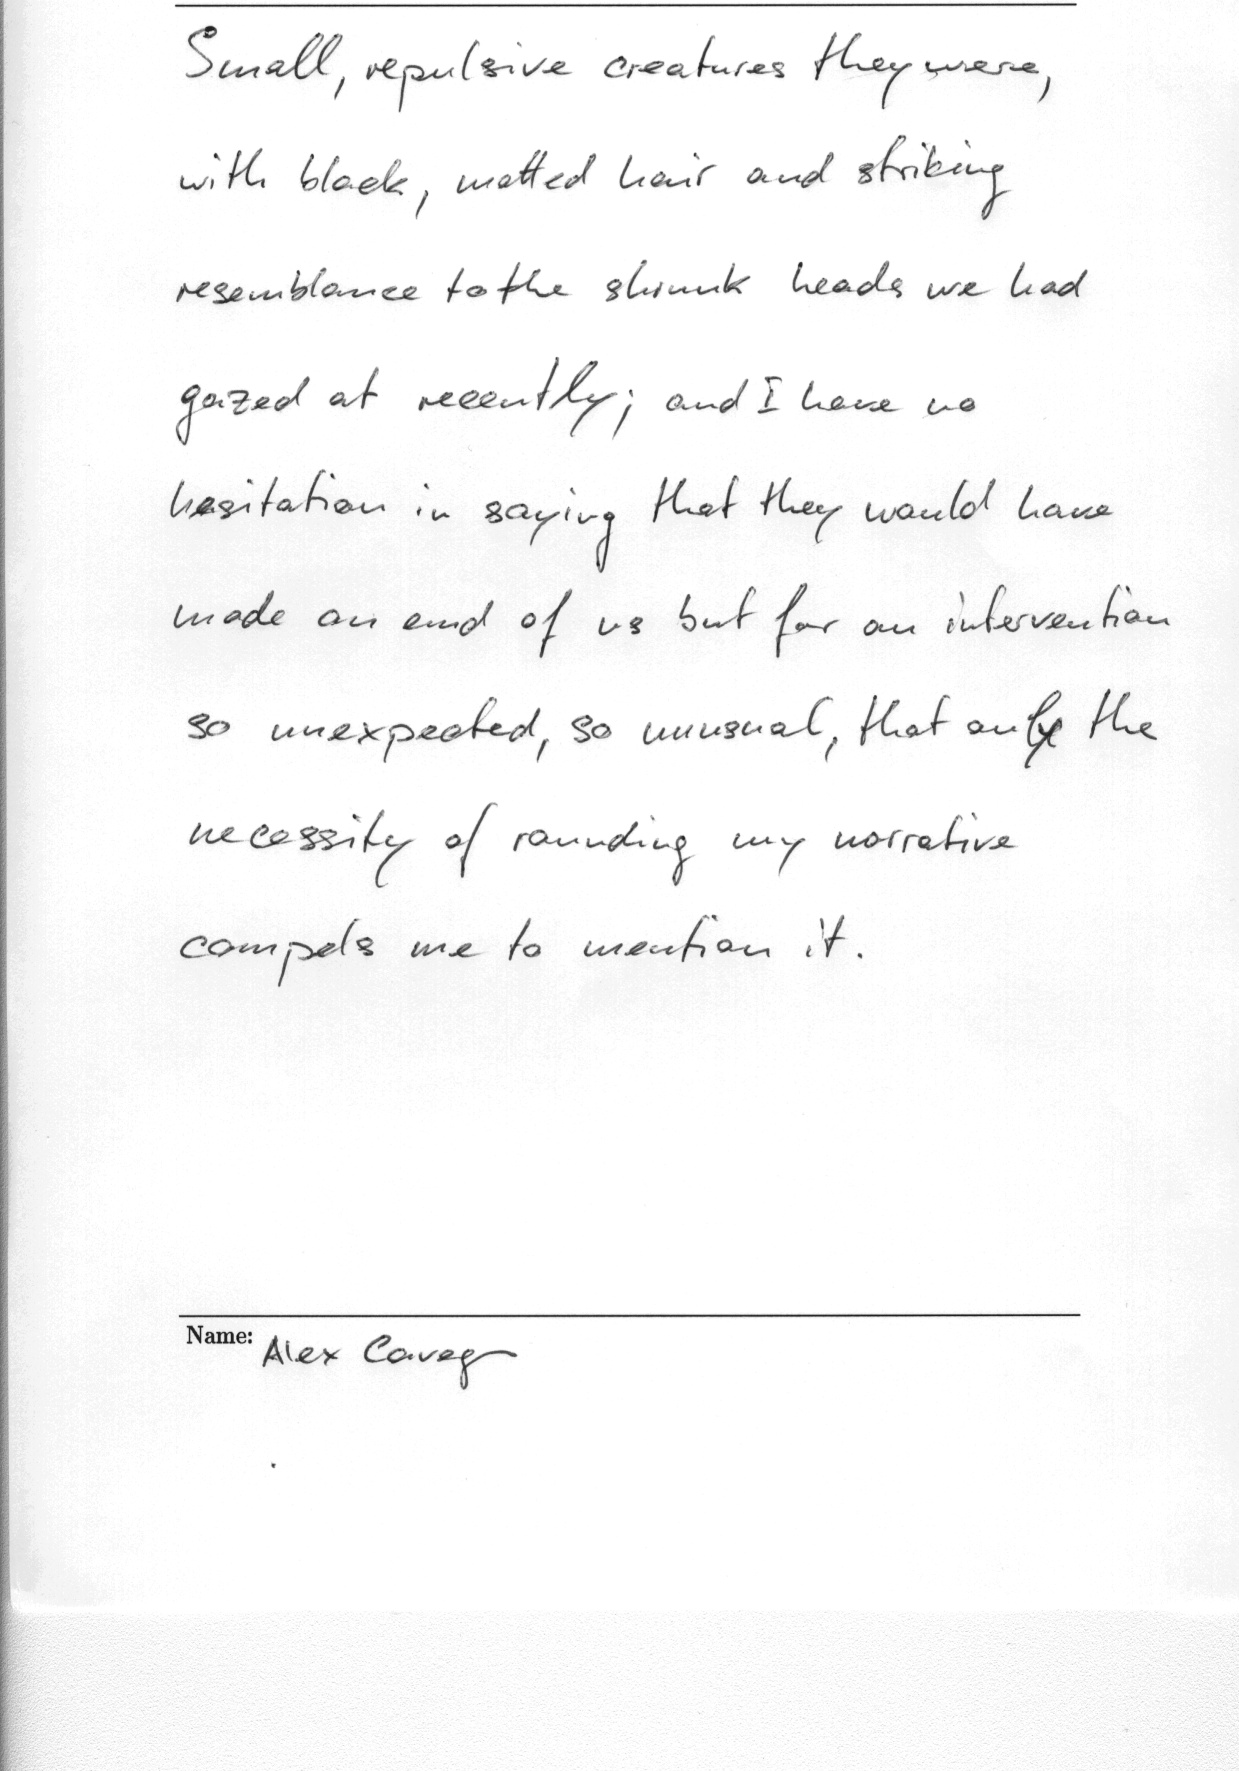 Small, repulsive creatures they were,
with black, matted hair and striking
resemblance to the shrunk heads we had
gazed at recently; and I have no
hesitation in saying that they would have
made an end of us but for an intervention
so unexpected, so unusual, that only the
necessity of rounding my narrative
compels me to mention it.
Name: Alex